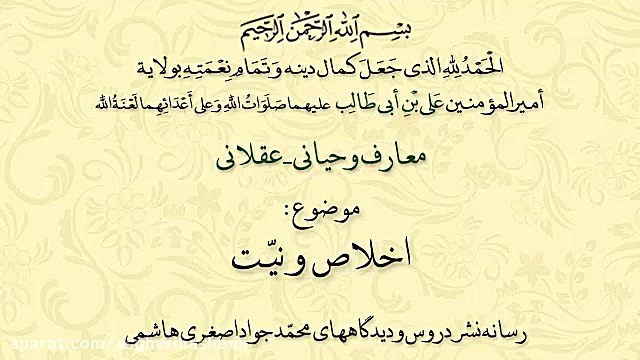 بِسْمِ اللهِ الرَّحْمٰنِ الرَّحِیْمِ
الْحَمْدُ لِلهِ الذی جَعَلَ کمال دینه وَ تَمَام نِعْمَتِهِ بولایة
أمیرالمؤمنین عَلی بْنِ أبی طَالِب علیهما صَلَوَاتُ اللهِ وَ عَلی أعْدَائِهِما لَعْنَةُ الله
معارف وحیانی-عقلانی
موضوع:
اخلاص و نیّت
رسانه نشر دروس و دیدگاههای محمّدجواد اصغری هاشمی
aparat.com/